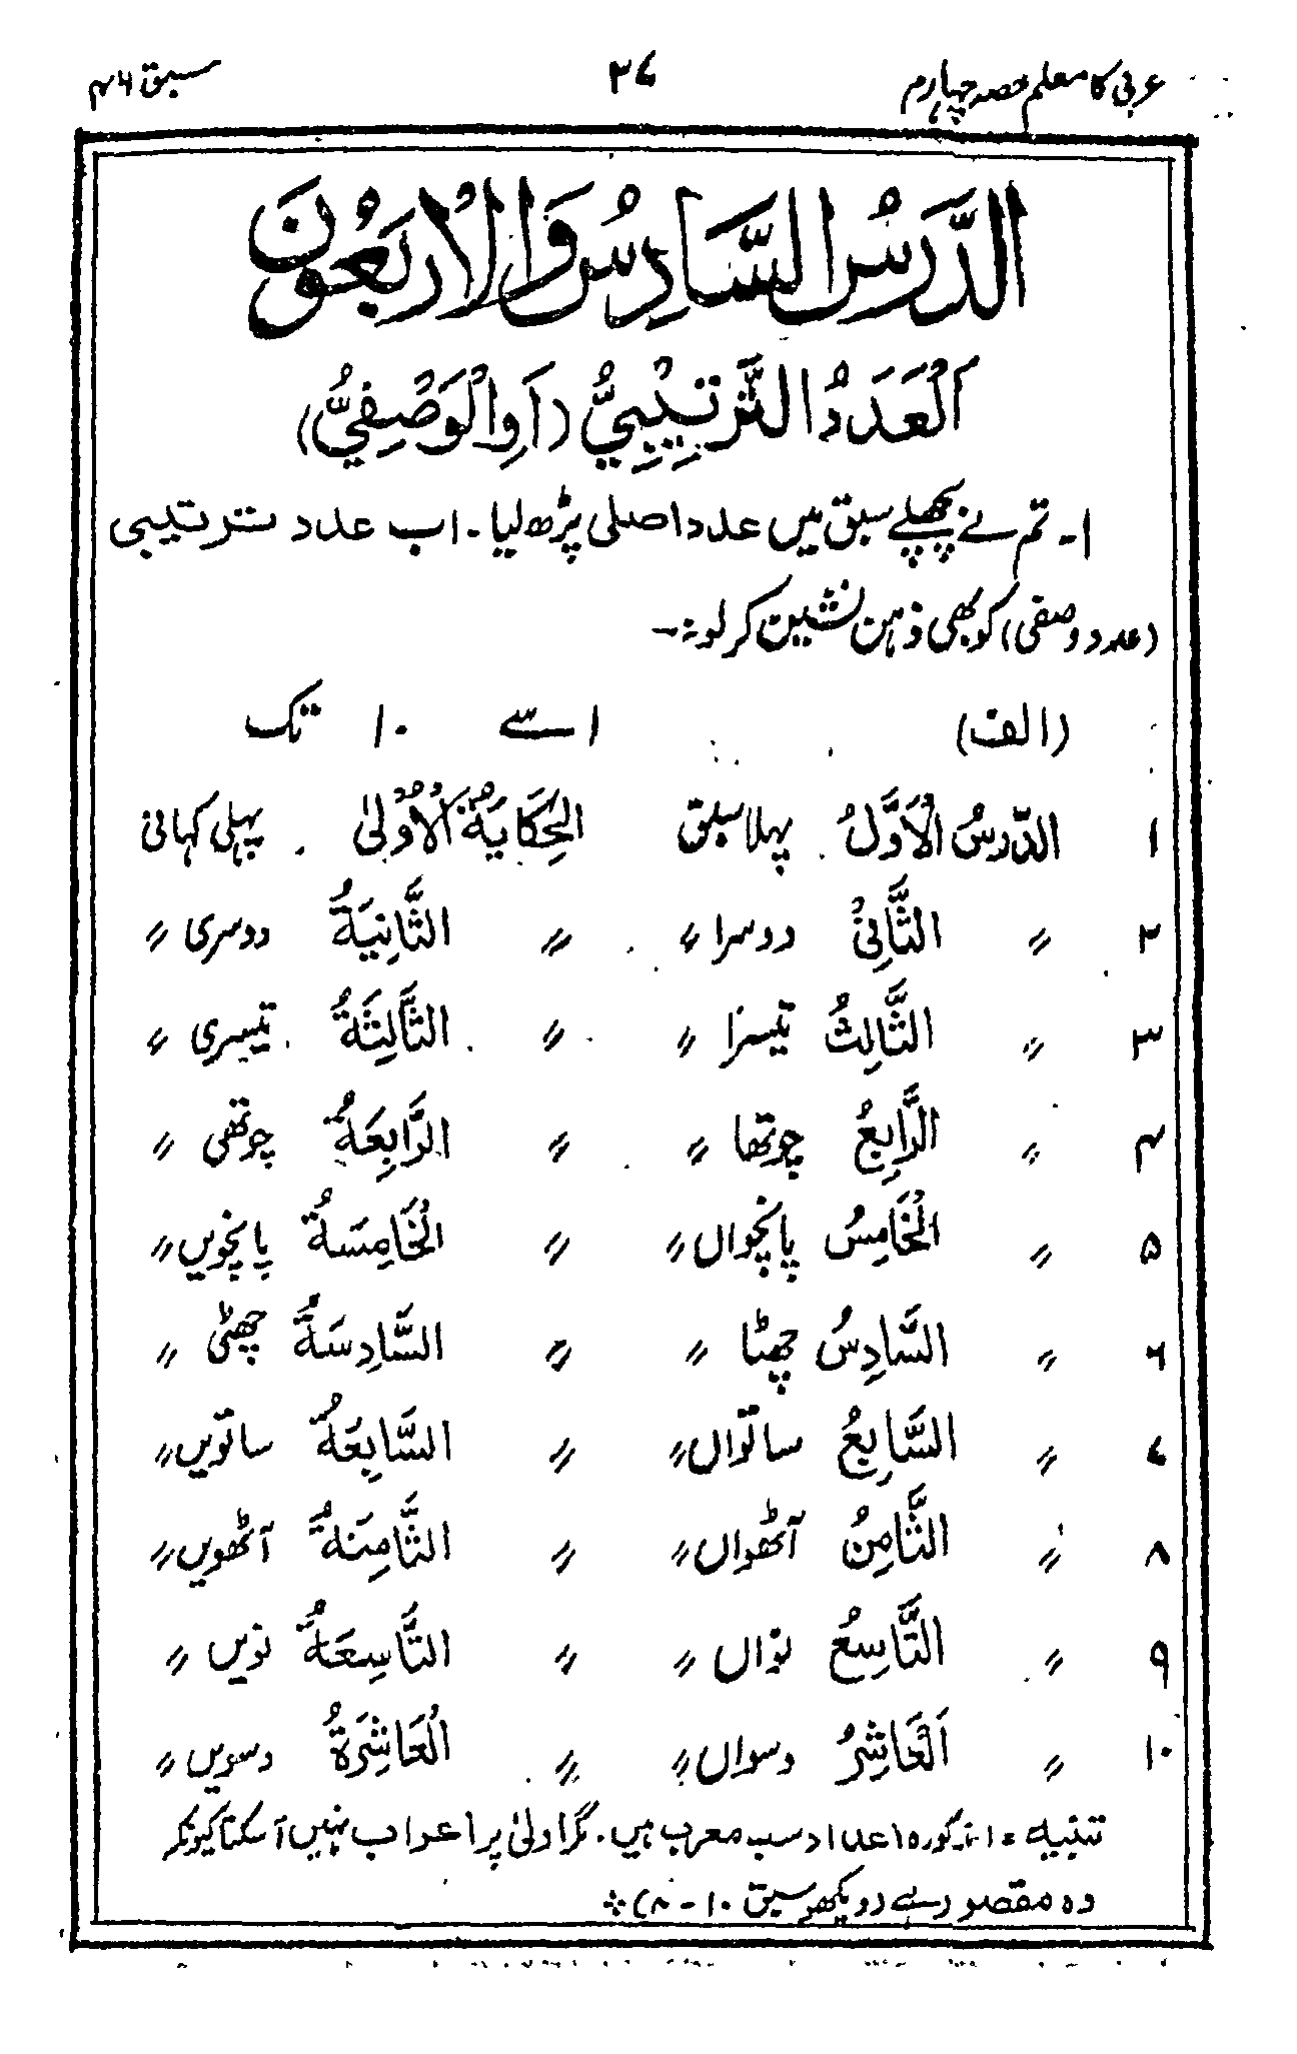 عربی کا معلم حصہ چہارم ۳۷ سبق ۴۶
الدَّرَسُ السَّادِسُ وَالْاَرْبَعُوْنَ
اَلْعَدَدُ التَّرْتِيْبِيُّ (اَوِ الْوَصْفِيُّ)
۱- تم نے پچھلے سبق میں عدد اصلی پڑھ لیا۔ اب عدد ترتیبی
(عدد وصفی) کو بھی ذہن نشین کر لو :-
(الف) ۱ سے ۱۰ تک
۱ الدّرسُ الْاَوَّلُ پہلا سبق الْحِكَايَةُ الْاُوْلىٰ پہلی کہانی
۲ 〃 الثَّانِيْ دوسرا 〃 〃 الثَّانِيَةُ دوسری 〃
۳ 〃 الثَّالِثُ تیسرا 〃 〃 الثَّالِثَةُ تیسری 〃
۴ 〃 الرَّابِعُ چوتھا 〃 〃 الرَّابِعَةُ چوتھی 〃
۵ 〃 الْخَامِسُ پانچواں 〃 〃 الْخَامِسَةُ پانچویں 〃
۶ 〃 السَّادِسُ چھٹا 〃 〃 السَّادِسَةُ چھٹی 〃
۷ 〃 السَّابِعُ ساتواں 〃 〃 السَّابِعَةُ ساتویں 〃
۸ 〃 الثَّامِنُ آٹھواں 〃 〃 الثَّامِنَةُ آٹھویں 〃
۹ 〃 التَّاسِعُ نواں 〃 〃 التَّاسِعَةُ نویں 〃
۱۰ 〃 اَلْعَاشِرُ دسواں 〃 〃 الْعَاشِرَةُ دسویں 〃
تنبیہ ۱ :- مذکورہ اعداد سب معرب ہیں۔ مگر اولیٰ پر اعراب نہیں آ سکتا کیونکہ
وہ مقصور ہے (دیکھو سبق ۱۰ - ۸) ؞